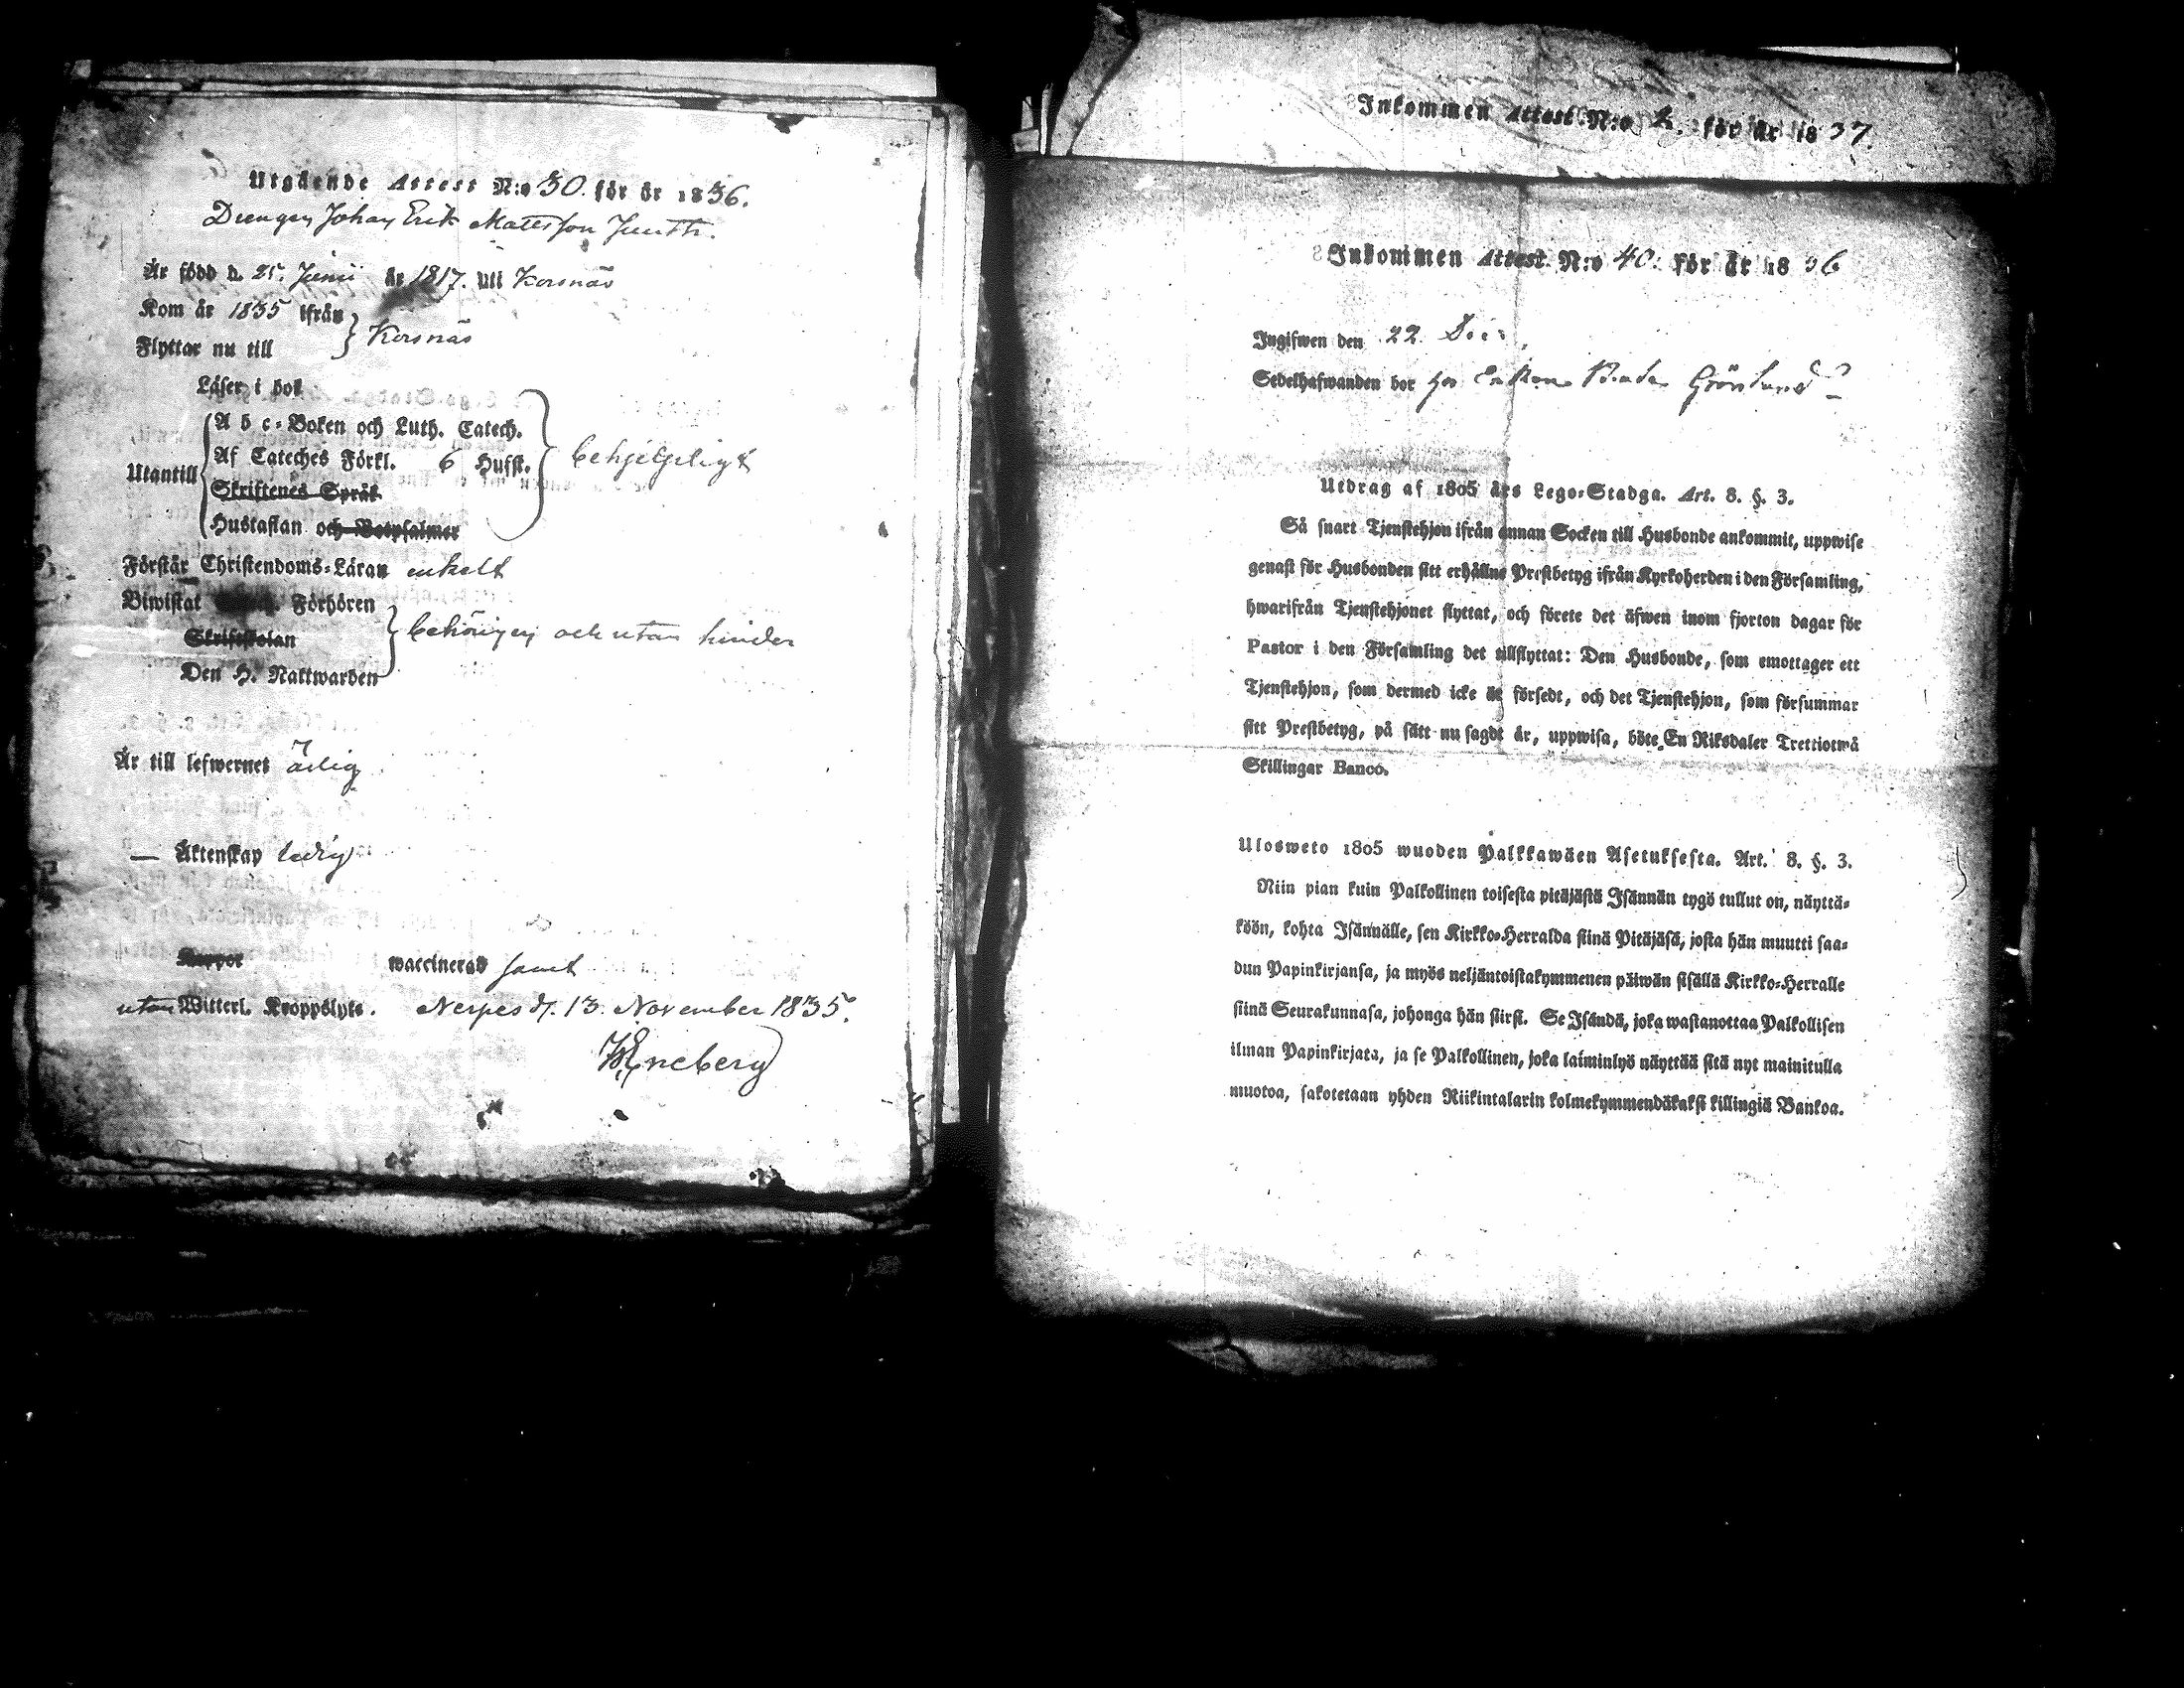 Utgående Attest N:o 30. för år 1836.
Drengen Johan Erik Mattsson Junth.
Är född d. 25. Junii år 1817. uti Korsnäs
Kom år 1835 ifrån
Flyttar nu till
Korsnäs
Läser i bok
Utantill
A b c-Boken och Luth. Catech.
Af Cateches Förkl. 6 Hufst.
Skriftenes Språk
Hustaflan och Botpsalmer
behjelpligt
Förstår Christendoms-Läran enkelt
Biwistat Förhören
Skriftskolan
Den H. Nattwarden
behörigen och utan hinder
Är till lefwernet ärlig
— Äktenskap ledig
Koppor waccinerad samt
utan Witterl. Kroppslyte. Nerpes d. 13. November 1835.
Eneberg
Inkommen Attest N:o 2. för år 1837.
Inkommen Attest N:o 40. för år 1836
Ingifwen den 22 Dec:
Sedelhafwanden bor hos Enkan Grönlund
Utdrag af 1805 års Lego-Stadga. Art. 8. §. 3.
Så snart Tjenstehjon ifrån annan Socken till Husbonde ankommit, uppwise
genast för Husbonden sitt erhållne Prestbetyg ifrån Kyrkoherden i den Församling,
hwarifrån Tjenstehjonet flyttat, och förete det äfwen inom fjorton dagar för
Pastor i den Församling det tillflyttat: Den Husbonde, som emottager ett
Tjenstehjon, som dermed icke är försedt, och det Tjenstehjon, som försummar
sitt Prestbetyg, på sätt nu sagdt är, uppwisa, böte En Riksdaler Trettiotwå
Skillingar Banco.
Ulosweto 1805 wuoden Palkkawäen Asetuksesta. Art. 8. §. 3.
Niin pian kuin Palkollinen toisesta pitäjästä Isännän tygö tullut on, näyttä-
köön, kohta Isännälle, sen Kirkko-Herralda siinä Pitäjäsä, josta hän muutti saa-
dun Papinkirjansa, ja myös neljäntoistakymmenen päiwän sisällä Kirkko-Herralle
siinä Seurakunnasa, johonga hän siirsi. Se Isändä, joka wastanottaa Palkollisen
ilman Papinkirjata, ja se Palkollinen, joka laiminlyö näyttää sitä nyt mainitulla
muotoa, sakotetaan yhden Riikintalarin kolmekymmendäkaksi killingiä Bankoa.